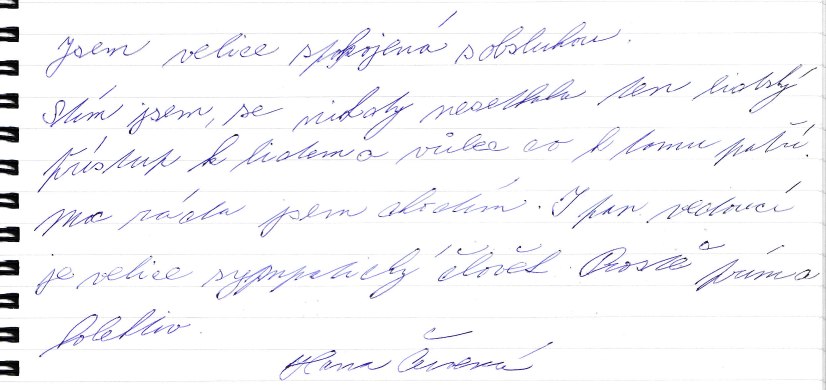 Jsem velice spokojená s obsluhou.
S tím jsem, se nikdy nesetkala ten lidský
přístup k lidem a vůbec co k tomu patří.
Moc ráda jsem chodím. I pan vedoucí
je velice sympatický člověk. Prostě príma
kolektiv.
Hana